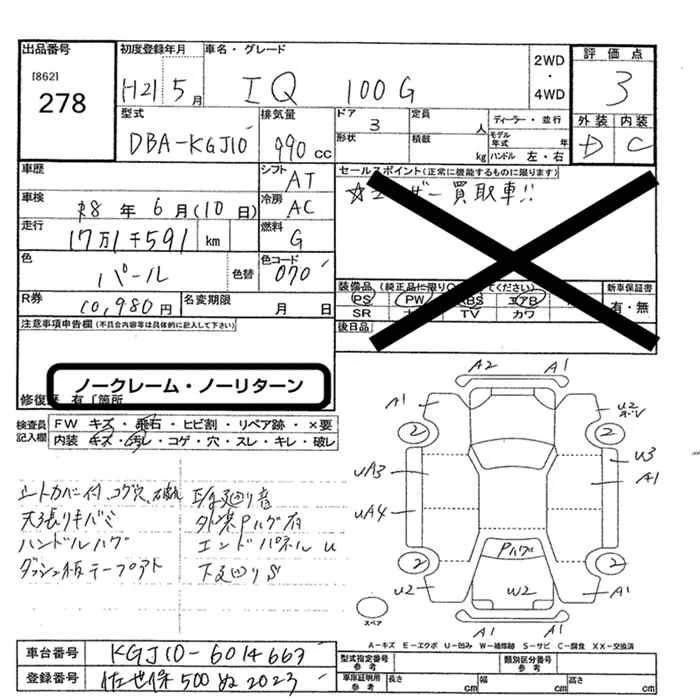 出品番号
[862]
278
初度登録年月
H21 5月
車名・グレード
IQ 100G
2WD
・
4WD
評価点
3
外装 内装
D C
型式
DBA-KGJ10
排気量
990 cc
ドア
3
形状
定員
人
積載
kg
ディーラー・並行
モデル年式 年
ハンドル 左・右
車歴
車検
R8年6月(10日)
走行
17万1千591 km
シフト
AT
冷房
AC
燃料
G
色
パール
色替
色コード
070
R券
10,980円
名変期限
月 日
セールスポイント(正常に機能するものに限ります)
☆ユーザー買取車!!
装備品(純正品に限り
ください)
PS PW ABS エアB
SR TV カワ
新車保証書
有・無
後日品
注意事項申告欄(不具合内容等は具体的に記入して下さい)
ノークレーム・ノーリターン
修復歴 有 [箇所
検査員記入欄
FW キズ・飛石・ヒビ割・リペア跡・×要
内装 キズ・汚レ・コゲ・穴・スレ・キレ・破レ
シートカバー付、コゲ穴、破れ
天張りキバミ
ハンドルハゲ
ダッシュ板テープアト
外装Pハゲ有
エンドパネルU
下廻りS
A2 A1
A1 U2
2 2
UA3 U3
A1
UA4
Pハゲ
2 2
U2 W2 A1
A1
スペア
A-キズ E-エクボ U-凹み W-補修跡 S-サビ C-腐食 XX-交換済
車台番号
KGJ10-6014667
登録番号
佐世保500ぬ2023
型式指定番号 参考
類別区分番号 参考
車庫証明用 参考
長さ cm 幅 cm 高さ cm